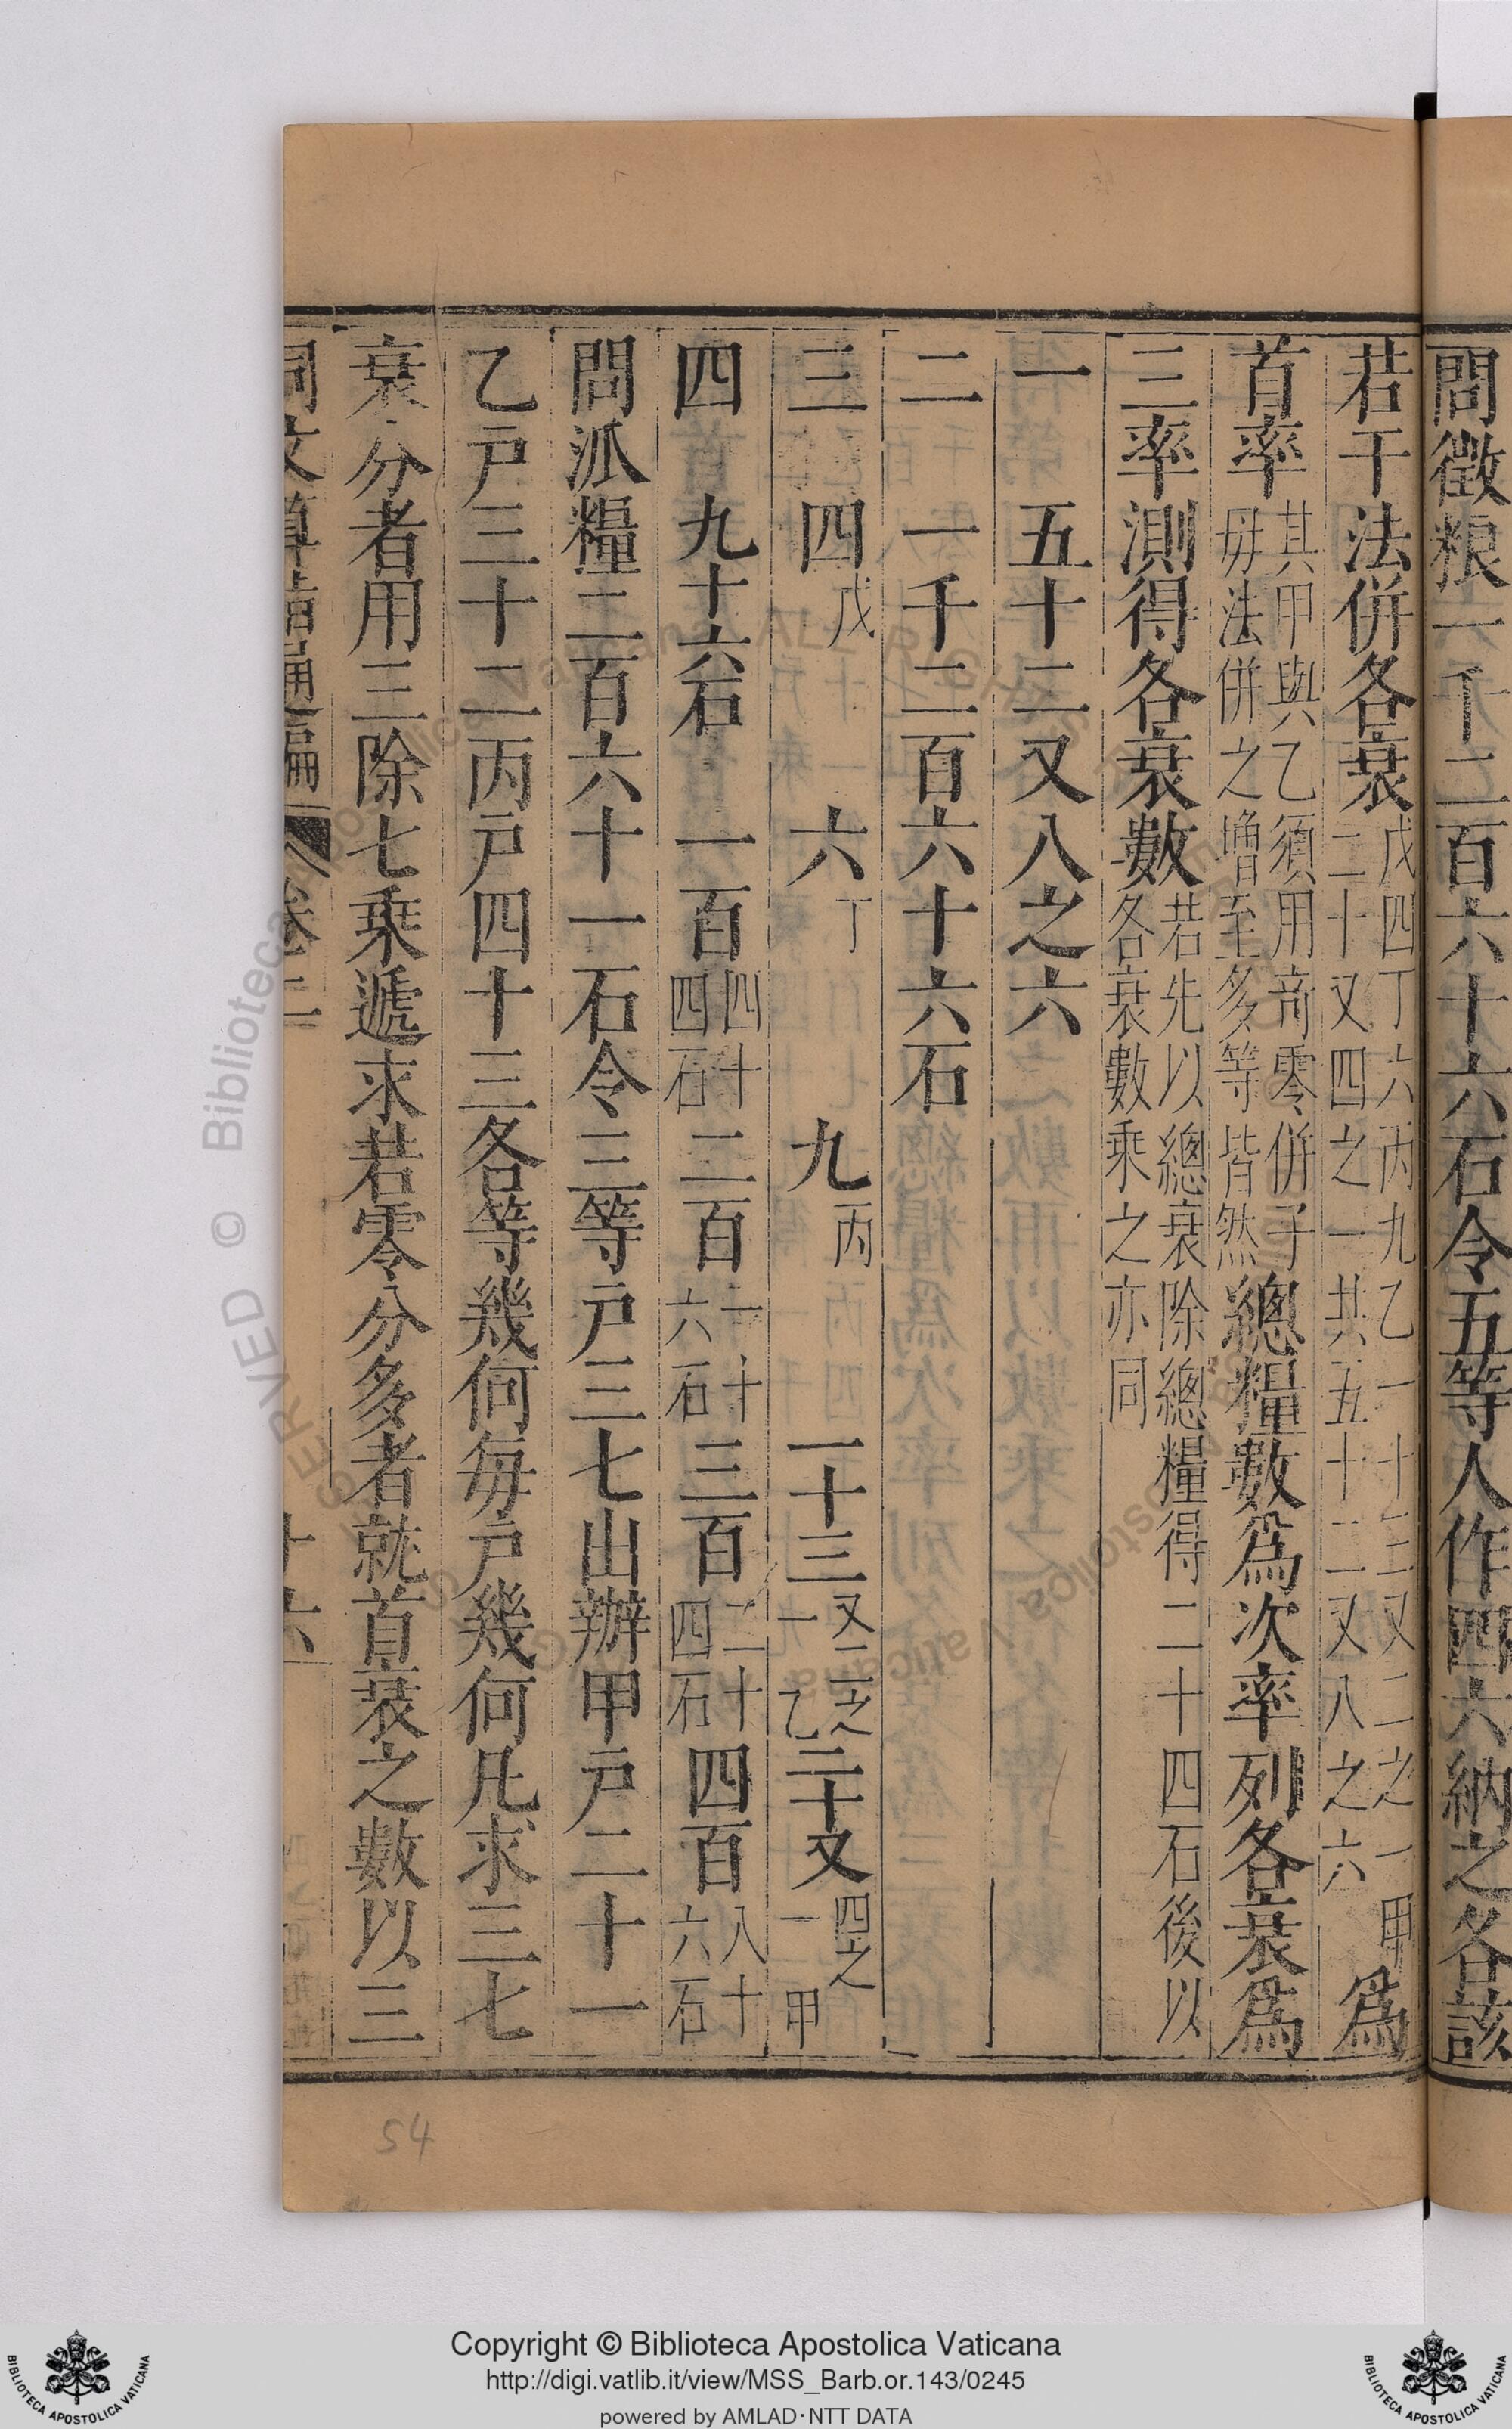 問徵粮一千二百六十六石令五等人作四六納之各該
若干法併各衰戊四丁六丙九乙一十三又二之一甲二十又四之一共五十二又八之六為
首率其甲與乙須用奇零併子母法併之增至多等皆然總糧數為次率列各衰為
三率測得各衰數若先以總衰除總糧得二十四石後以各衰數乘之亦同
一 五十二又八之六
二 一千二百六十六石
三 四戊 六丁 九丙 一十三又二之一乙 二十又四之一甲
四 九十六石 一百四十四石 二百一十六石 三百二十四石 四百八十六石
問派糧二百六十一石令三等戶三七出辦甲戶二十一
乙戶三十二丙戶四十三各等幾何每戶幾何凡求三七
衰分者用三除七乘遞求若零分多者就首衰之數以三
同文算指通編 卷二 十六
54
Copyright © Biblioteca Apostolica Vaticana
http://digi.vatlib.it/view/MSS_Barb.or.143/0245
powered by AMLAD·NTT DATA
BIBLIOTECA APOSTOLICA VATICANA
BIBLIOTECA APOSTOLICA VATICANA